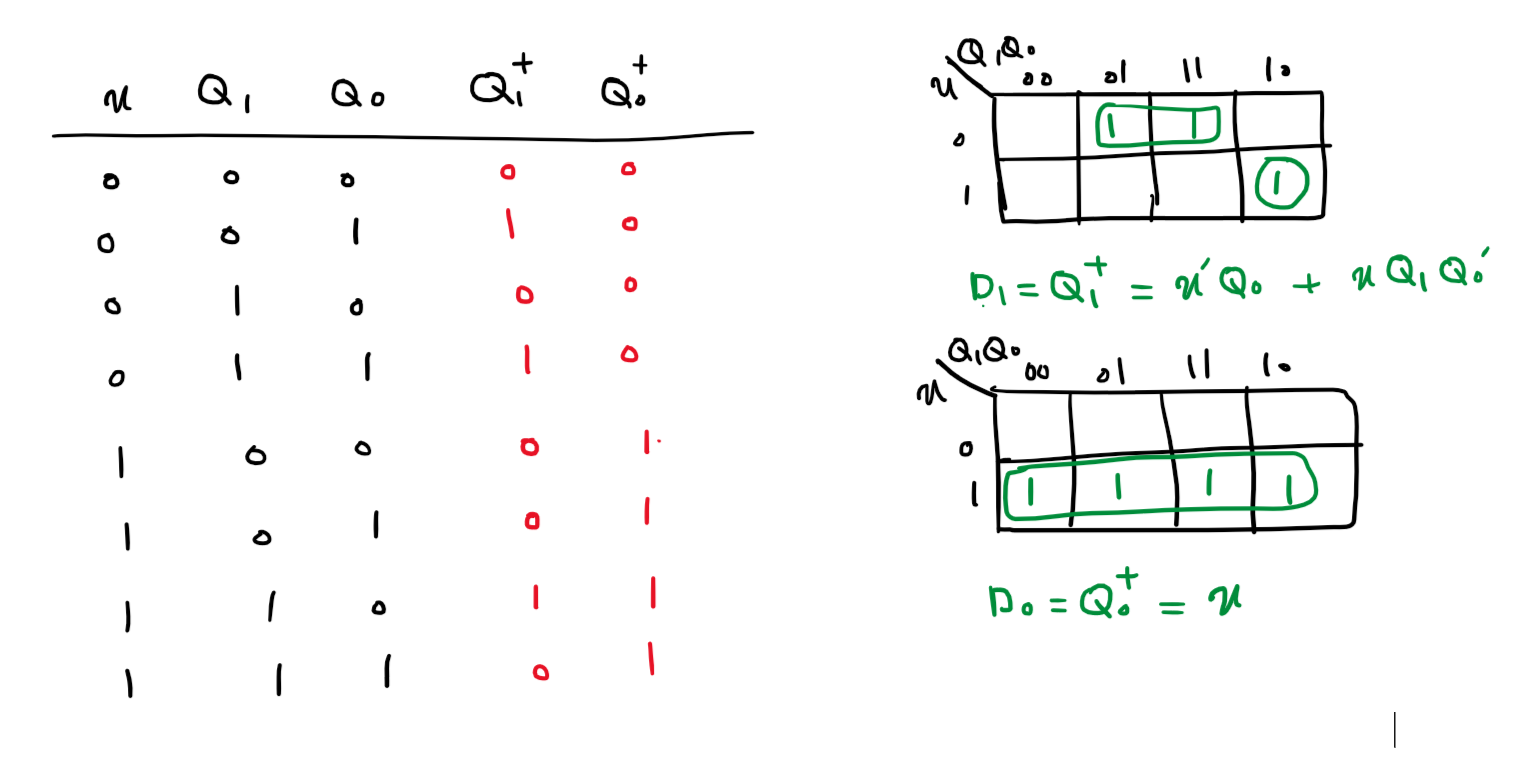 x Q₁ Q₀ Q₁⁺ Q₀⁺
0 0 0 0 0
0 0 1 1 0
0 1 0 0 0
0 1 1 1 0
1 0 0 0 1
1 0 1 0 1
1 1 0 1 1
1 1 1 0 1
Q₁Q₀
x 00 01 11 10
0 1 1
1 1
D₁ = Q₁⁺ = x′Q₀ + xQ₁Q₀′
Q₁Q₀
x 00 01 11 10
0
1 1 1 1 1
D₀ = Q₀⁺ = x